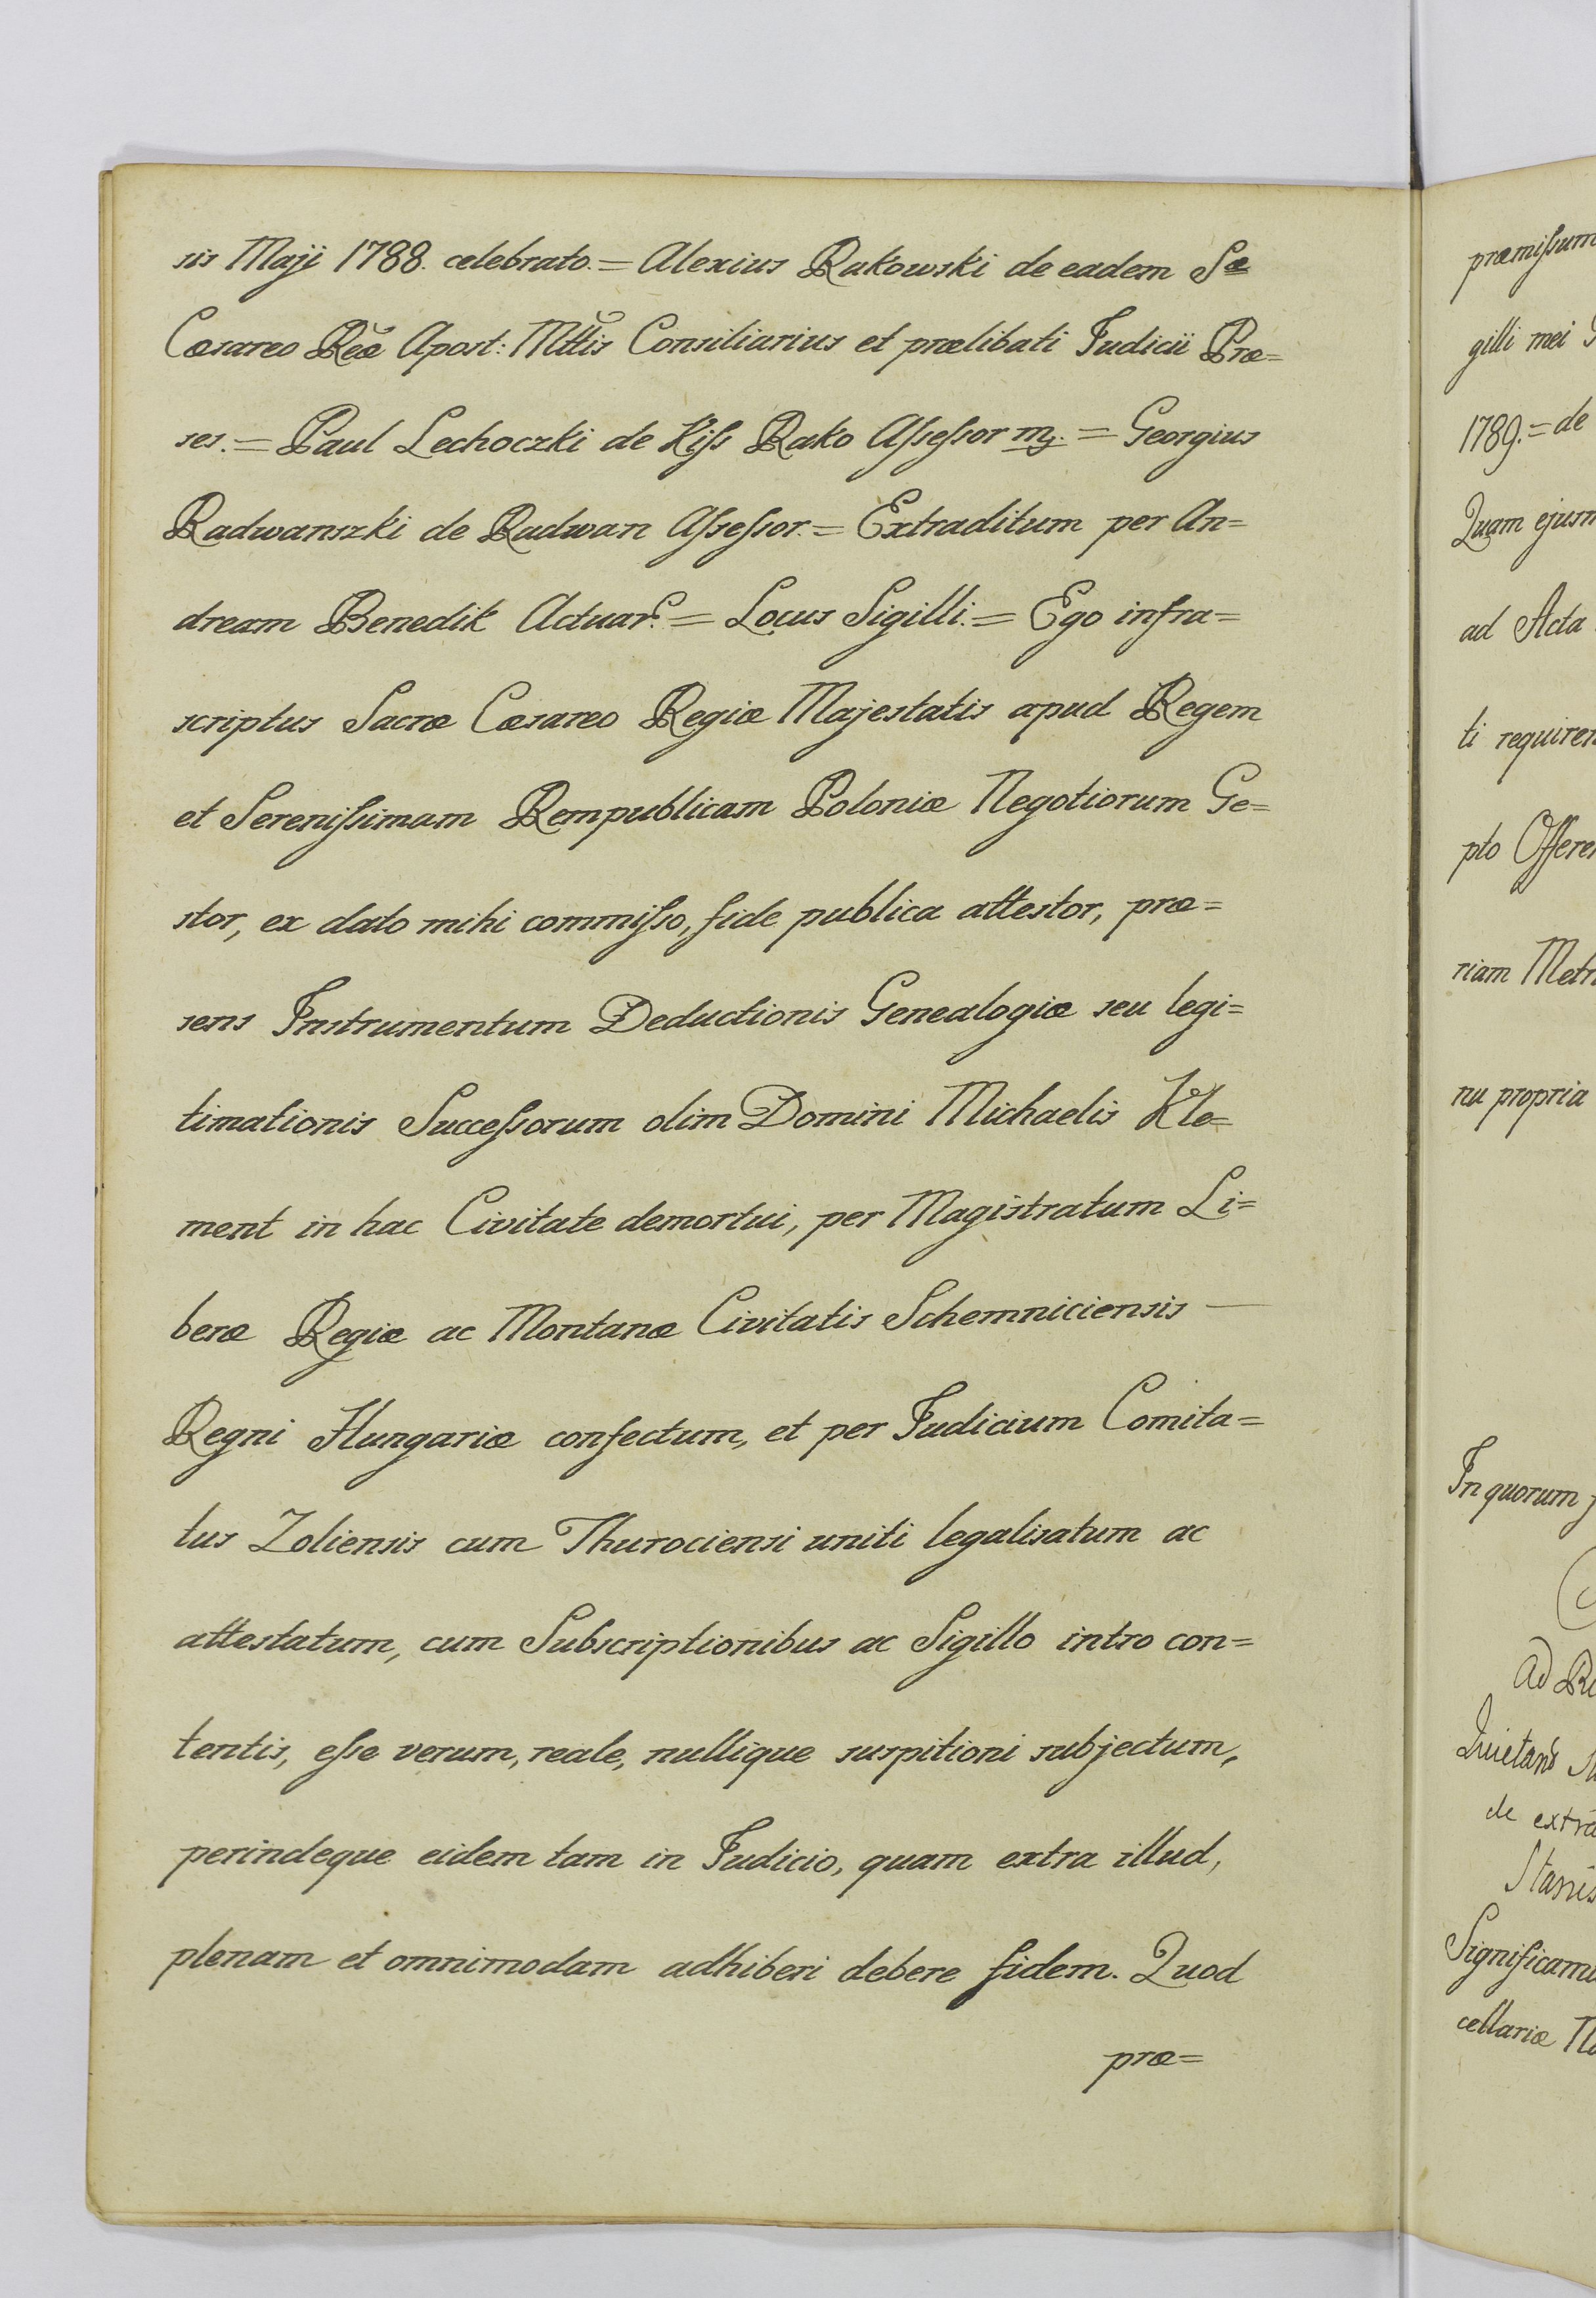 sis Maji 1788. celebrato. = Alexius Rakowski de eadem Sæ
Cæsareo Reæ Apost: Mttis Consiliarius et prælibati Judicii Præ=
ses. = Paul Lechoczki de Kiſs Rako Aſseſsor = Georgius
Radwanszki de Radwan Aſseſsor. = Extraditum per An=
dream Benedik Actuar. = Locus Sigilli. = Ego infra=
scriptus Sacræ Cæsareo Regiæ Majestatis apud Regem
et Sereniſsimam Rempublicam Poloniæ Negotiorum Ge=
stor, ex dato mihi commiſso, fide publica attestor, præ=
sens Instrumentum Deductionis Genealogiæ seu legi=
timationis Succeſsorum olim Domini Michaelis Kle=
ment in hac Civitate demortui, per Magistratum Li=
beræ Regiæ ac Montanæ Civitatis Schemniciensis —
Regni Hungariæ confectum, et per Judicium Comita=
tus Zoliensis cum Thurociensi uniti legalisatum ac
attestatum, cum Subscriptionibus ac Sigillo intro con=
tentis, eſse verum, reale, nullique suspitioni subjectum,
perindeque eidem tam in Judicio, quam extra illud,
plenam et omnimodam adhiberi debere fidem. Quod
præ=
præmiſsum
gilli mei
1789. = de
Quam ejusm
ad Acta
ti requiren
pto Offeren
riam Metr
nu propria
In quorum
Ad
Quietans
de extra
Stanis
Significamu
cellariæ